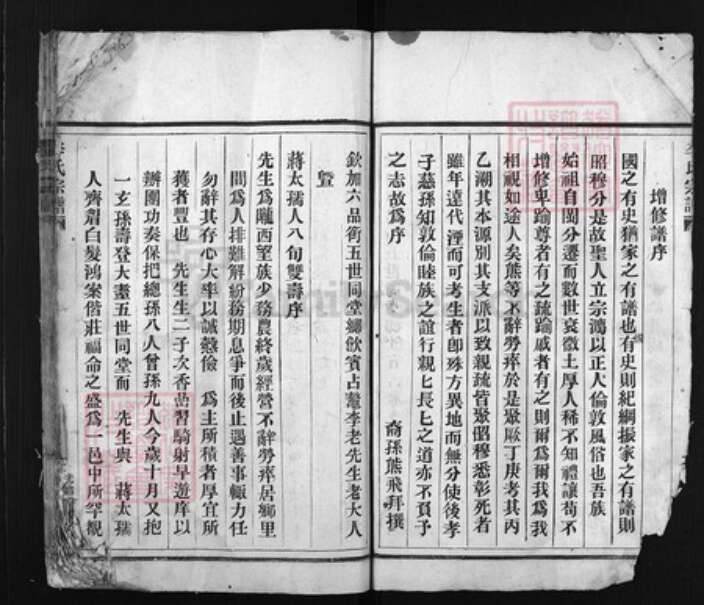 增修譜序
國之有史猶家之有譜也有史則紀綱振家之有譜則
昭穆分是故聖人立宗鴻以正人倫敦風俗也吾族
始祖自閩分遷而數世衰微土厚人稀不知禮讓苟不
增修卑踰尊者有之疏踰戚者有之則爾爲爾我爲我
相視如途人矣熊等不辭勞瘁於是聚厥丁庚考其內
乙溯其本源別其支派以致親疏皆聚昭穆悉彰死者
雖年遠代湮而可考生者即殊方異地而無分使後孝
子慈孫知敦倫睦族之誼行親匕長匕之道亦不負予
之志故爲序
裔孫熊飛拜撰
欽加六品銜五世同堂鄉飲賓占鰲李老先生老大人
曁
蔣太孺人八旬雙壽序
先生爲隴西望族少務農終歲經營不辭勞瘁居鄉里
間爲人排難解紛務期息爭而後止遇善事輒力任
勿辭其存心大率以誠慤儉 爲主所積者厚宜所
穫者豐也 先生生二子次香嵒習騎射早遊庠以
辦團功奏保把總孫八人曾孫九人今歲十月又抱
一玄孫壽登大耋五世同堂而 先生與 蔣太孺
人齊眉白髮鴻案偕莊福命之盛爲一邑中所罕覩
氏宗譜